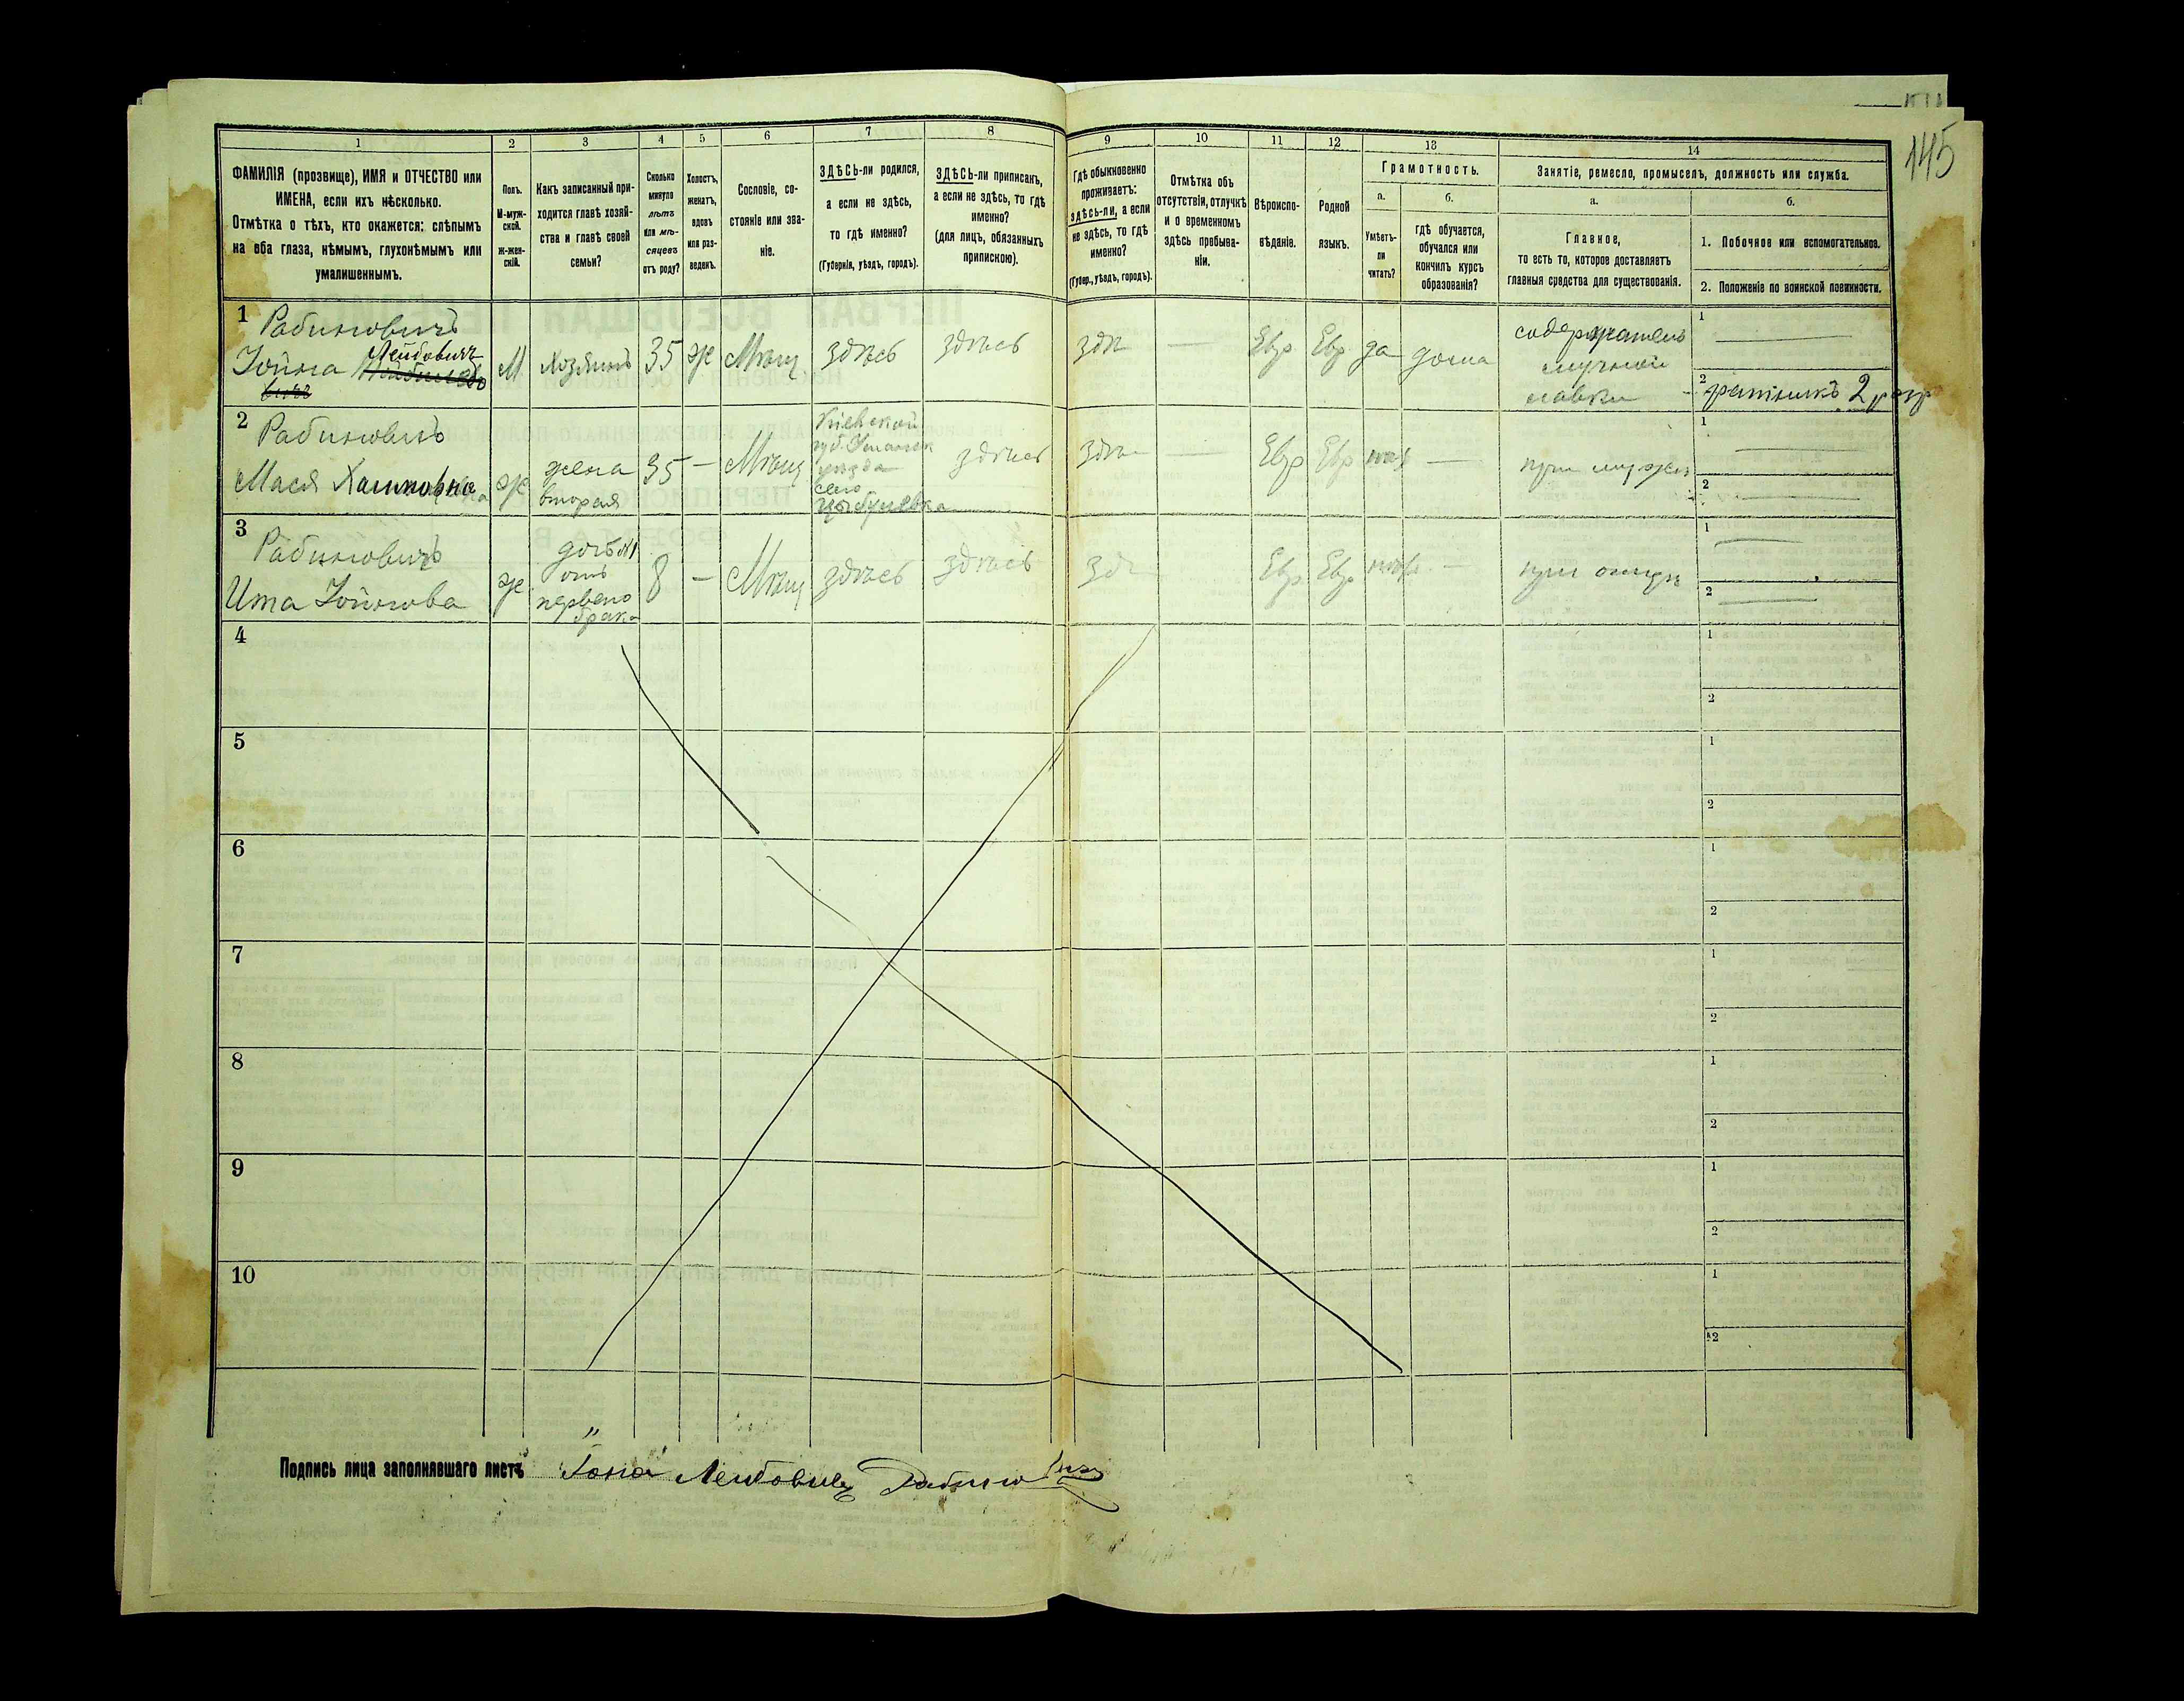 145
1 2 3 4 5 6 7 8 9 10 11 12 13 14
ФАМИЛІЯ (прозвище), ИМЯ и ОТЧЕСТВО или ИМЕНА, если ихъ нѣсколько.
Отмѣтка о тѣхъ, кто окажется: слѣпымъ на оба глаза, нѣмымъ, глухонѣмымъ или умалишеннымъ.
Полъ.
М-мужской.
ж-женскій.
Какъ записанный приходится главѣ хозяйства и главѣ своей семьи?
Сколько минуло лѣтъ или мѣсяцевъ отъ роду?
Холостъ, женатъ, вдовъ или разведенъ.
Сословіе, состояніе или званіе.
ЗДѢСЬ-ли родился, а если не здѣсь, то гдѣ именно?
(Губернія, уѣздъ, городъ).
ЗДѢСЬ-ли приписанъ, а если не здѣсь, то гдѣ именно?
(для лицъ, обязанныхъ припискою).
Гдѣ обыкновенно проживаетъ: здѣсь-ли, а если не здѣсь, то гдѣ именно?
(Губер., уѣздъ, городъ).
Отмѣтка объ отсутствіи, отлучкѣ и о временномъ здѣсь пребываніи.
Вѣроисповѣданіе.
Родной языкъ.
Грамотность.
а.
Умѣетъ-ли читать?
б.
гдѣ обучается, обучался или кончилъ курсъ образованія?
Занятіе, ремесло, промыселъ, должность или служба.
а.
Главное,
то есть то, которое доставляетъ главныя средства для существованія.
б.
1. Побочное или вспомогательное.
2. Положеніе по воинской повинности.
1 Рабиновичъ
Іойна Лейбовичъ
М Хозяинъ 35 ж Мѣщ здѣсь здѣсь здѣ — Евр Евр да дома
содержатель мучной лавки
1 —
2 ратникъ 2 разр
2 Рабиновичъ
Мася Хаимовна
ж жена вторая 35 — Мѣщ
Кіевской губ. Уманск уѣзда село Цыбулевка
здѣсь здѣ — Евр Евр нѣт —
при мужѣ
1 —
2 —
3 Рабиновичъ
Ита Іойнова
ж дочь №1 отъ перваго брака 8 — Мѣщ здѣсь здѣсь здѣ Евр Евр нѣтъ —
при отцѣ
1 —
2 —
4 1 2
5 1 2
6 1 2
7 1 2
8 1 2
9 1 2
10 1 2
Подпись лица заполнявшаго листъ Іона Лейбовичъ Рабиновичъ